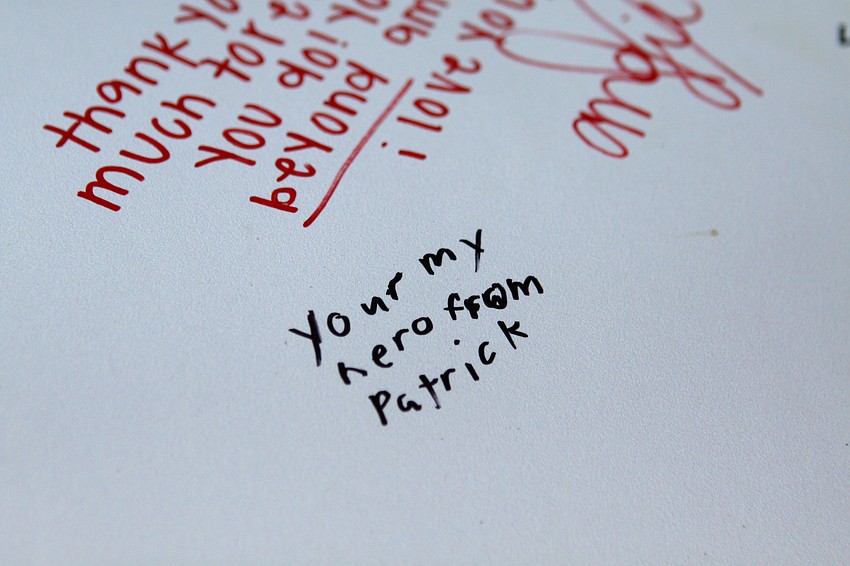 thank yo
much for e
you do! yo
beyond am
i love you
angie
your my
hero from
Patrick